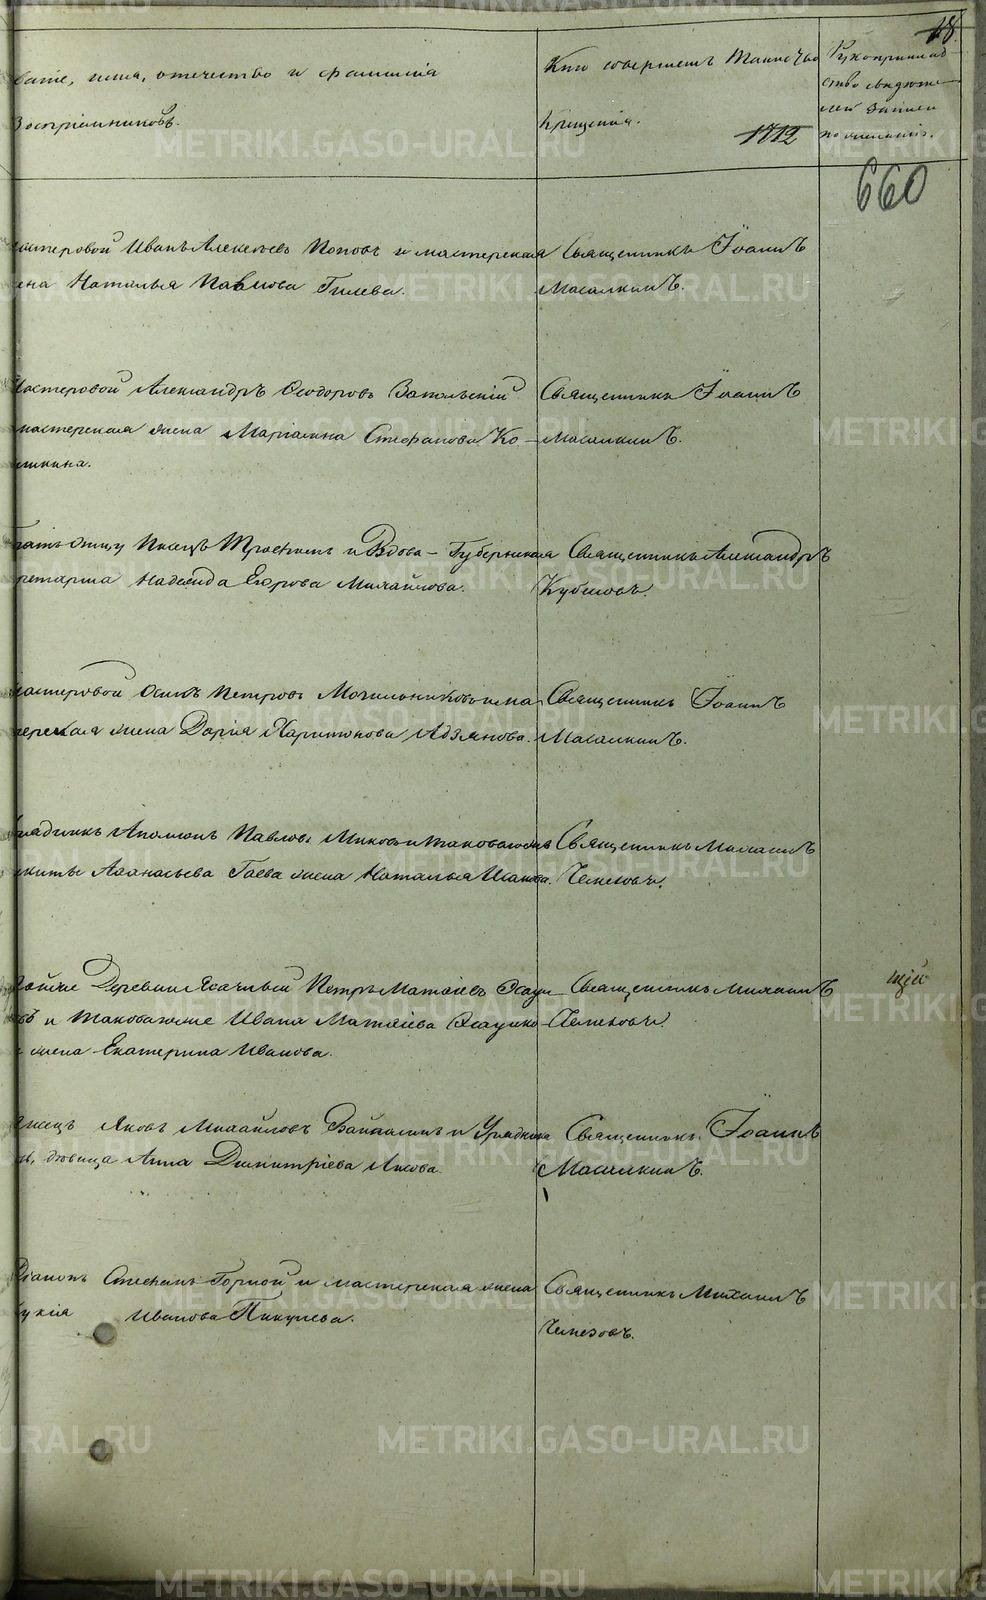 18.
вате, имя, отечество и фамилія
Воспріемниковъ.
Кто совершалъ Таинство
Крещенія.
1712
Рукоприклад-
ство свидѣте-
лей записи
по желанію.
660
мастеровой Иванъ Алексѣевъ Поповъ и мастерская
жена Наталья Павлова Гилева.
Священникъ Іоаннъ
Масалкинъ.
Мастеровой Александръ Ѳеодоровъ Запольскій
мастерская жена Маріамна Стефанова Ко-
Священникъ Іоаннъ
Масалкинъ.
Писецъ и Вдова - Губернская
секретарша Надежда Егорова Михайлова.
Священникъ Александръ
Кубасовъ.
мастеровой Осипъ Петровъ Мочильниковъ и мас
терская жена Дарія Харитонова Адзянова.
Священникъ Іоаннъ
Масалкинъ.
Урядникъ Аполлонъ Павловъ
Никиты Аѳанасьева Гаева жена Наталья Исакова.
Священникъ Михаилъ
Чемезовъ.
Деревни Петръ Матѳіевъ
и таковаго же Ивана Матѳіева
жена Екатерина Иванова.
Священникъ Михаилъ
Чемезовъ.
щій
Писецъ Яковъ Михайловъ и Урядника
дѣвица Анна Димитріева
Священникъ Іоаннъ
Масалкинъ.
Діаконъ Стефанъ Горной и мастерская жена
Лукія Иванова Пикулева.
Священникъ Михаилъ
Чемезовъ.
METRIKI.GASO-URAL.RU